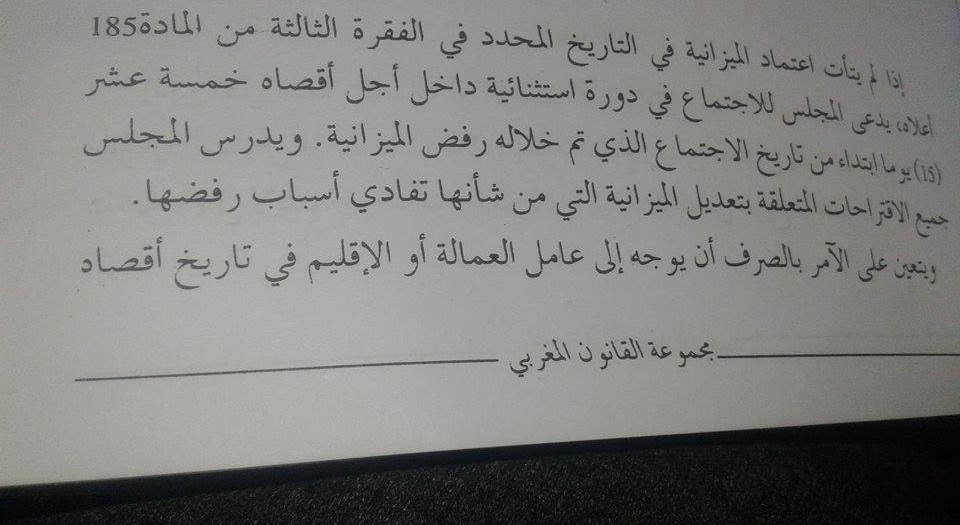 إذا لم يتأت اعتماد الميزانية في التاريخ المحدد في الفقرة الثالثة من المادة185
أعلاه، يدعى المجلس للاجتماع في دورة استثنائية داخل أجل أقصاه خمسة عشر
(15) يوما ابتداء من تاريخ الاجتماع الذي تم خلاله رفض الميزانية. ويدرس المجلس
جميع الاقتراحات المتعلقة بتعديل الميزانية التي من شأنها تفادي أسباب رفضها.
ويتعين على الآمر بالصرف أن يوجه إلى عامل العمالة أو الإقليم في تاريخ أقصاه
مجموعة القانون المغربي